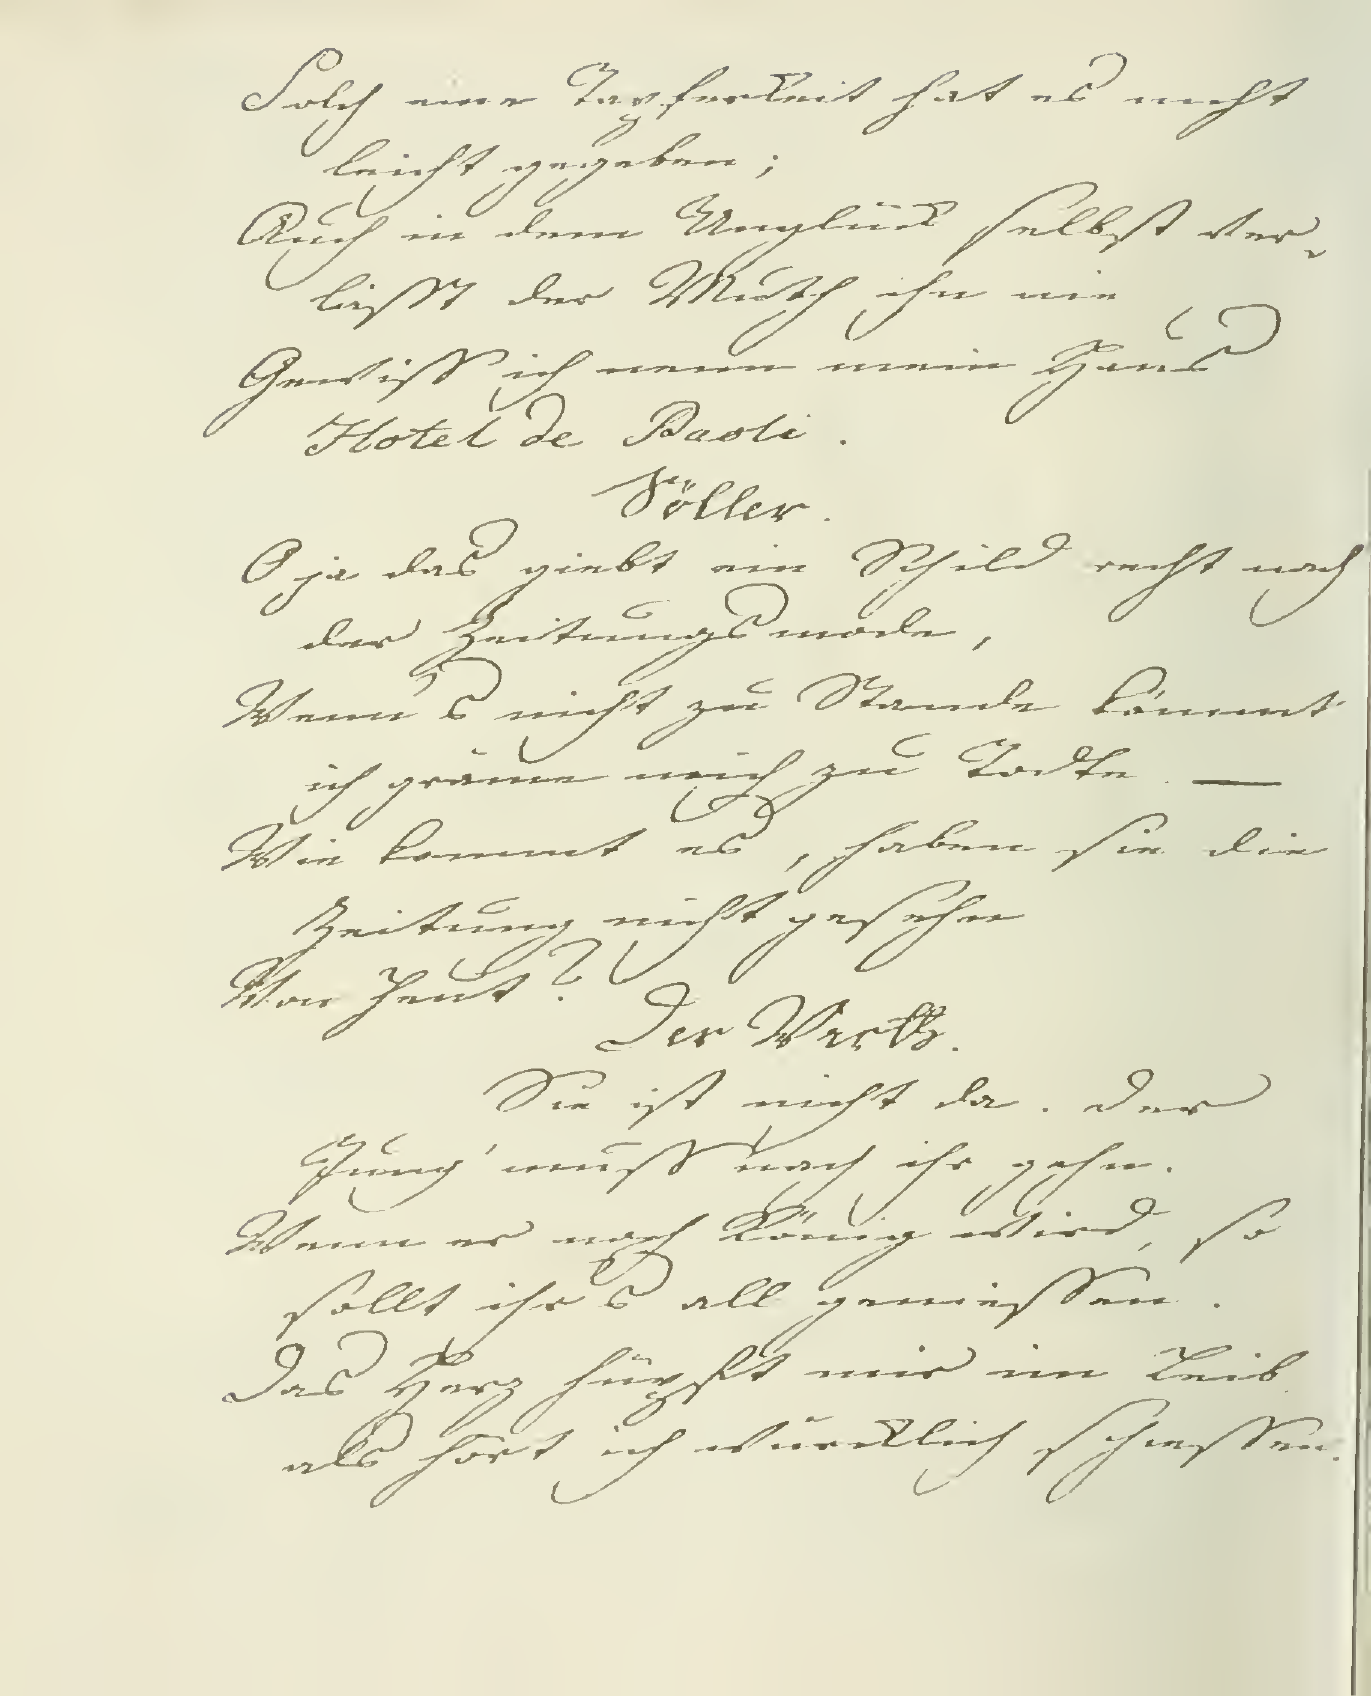 Solch eine Tapferkeit hat es nicht
leicht gegeben;
Auch in dem Unglück selbst ver-
lässt der Muth ihn nie
Gewiss ich nenn mein Haus
Hotel de Paoli.
Söller.
O ja das giebt ein Schild recht nach
der Zeitungsmode,
Wenn's nicht zu Stande kömmt
ich gräme mich zu Todte. —
Wie kommt es, haben sie die
Zeitung nicht gesehn
Von heut?
Der Wirth.
Sie ist nicht da. Der
Jung' muss nach ihr gehn.
Wenn er noch König wird, so
sollt ihr's all geniessen.
Das Herz hüpft mir im Leib
als hört ich würcklich schiessen.